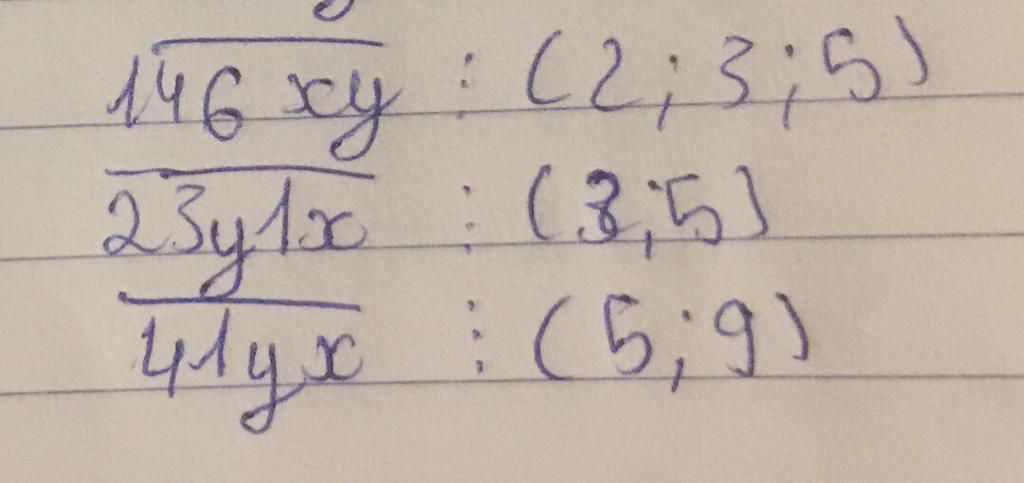 146xy ⋮ (2; 3; 5)
23y1x ⋮ (3; 5)
41yx ⋮ (5; 9)